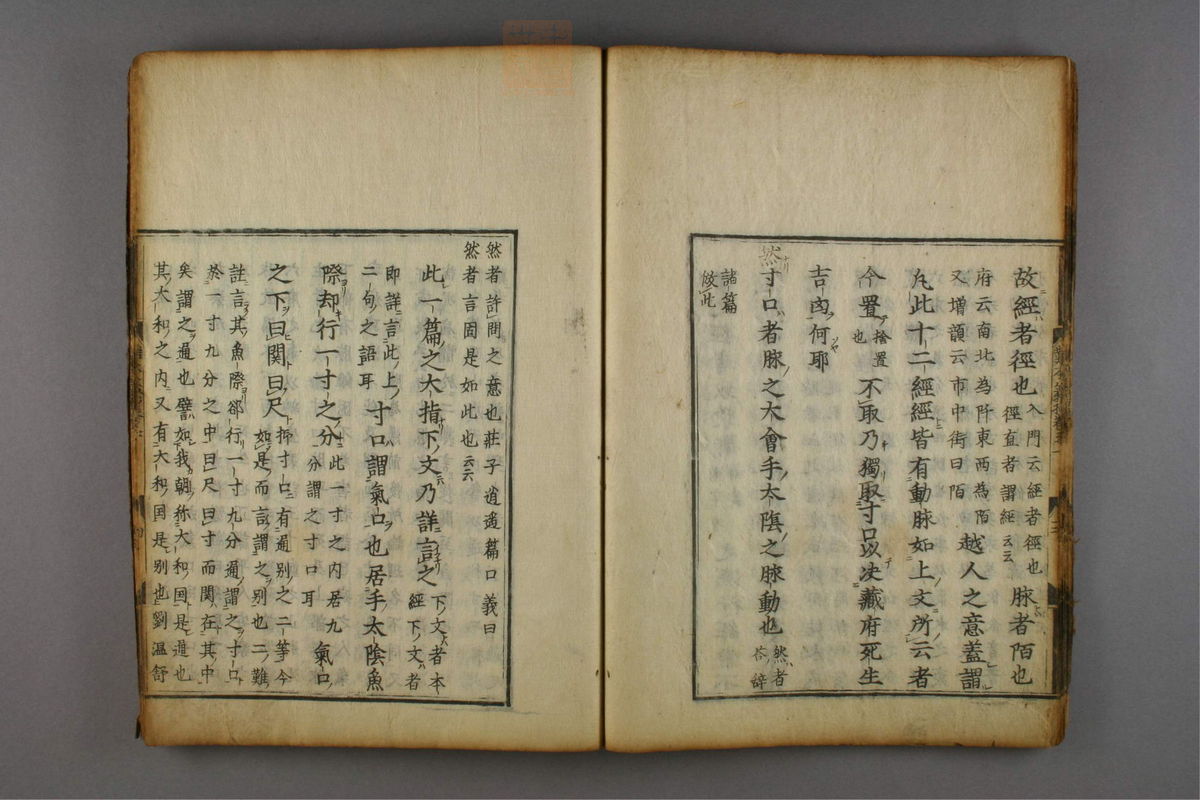 故經者徑也 入門云經者徑也 脉者陌也
徑直者謂經云云
府云南北為阡東西為陌
又增韻云市中街曰陌 越人之意蓋謂
凢此十二經經皆有動脉如上文所云者
今置 捨置也 不取乃獨取寸口以决藏府死生
吉凶何耶
然
寸口者脉之大會手太陰之脉動也 然者答辞
諸篇
倣此
然者許問之意也莊子逍遥篇口義曰
然者言固是如此也云云
此一篇之大指下文乃詳言之 下文者本經下文者
即詳言此上
二句之語耳 寸口謂氣口也居手太陰魚
際却行一寸之分 此一寸之内居九分謂之寸口耳 氣口
之下曰関曰尺 抑寸口有通别之二等今
如是而言謂之别也二難
註言其魚際郤行一寸九分通謂之寸口
於一寸九分之中曰尺曰寸而関在其中
矣謂之通也譬如我朝称大和国是通也
其大和之内又有大和国是别也劉温舒